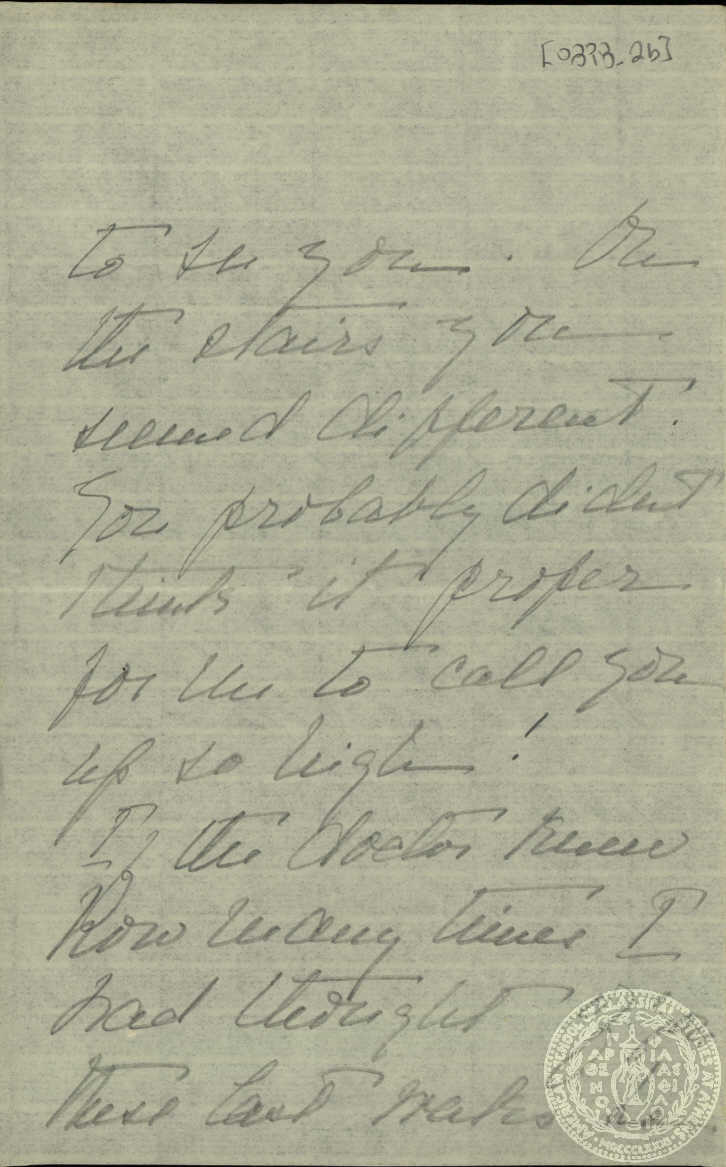 [0333_2b]
to see you. On
the stairs you
seemed different.
You probably dident
think it proper
for me to call you
up so high!
If the doctor knew
how many times I
had thought
these last weeks